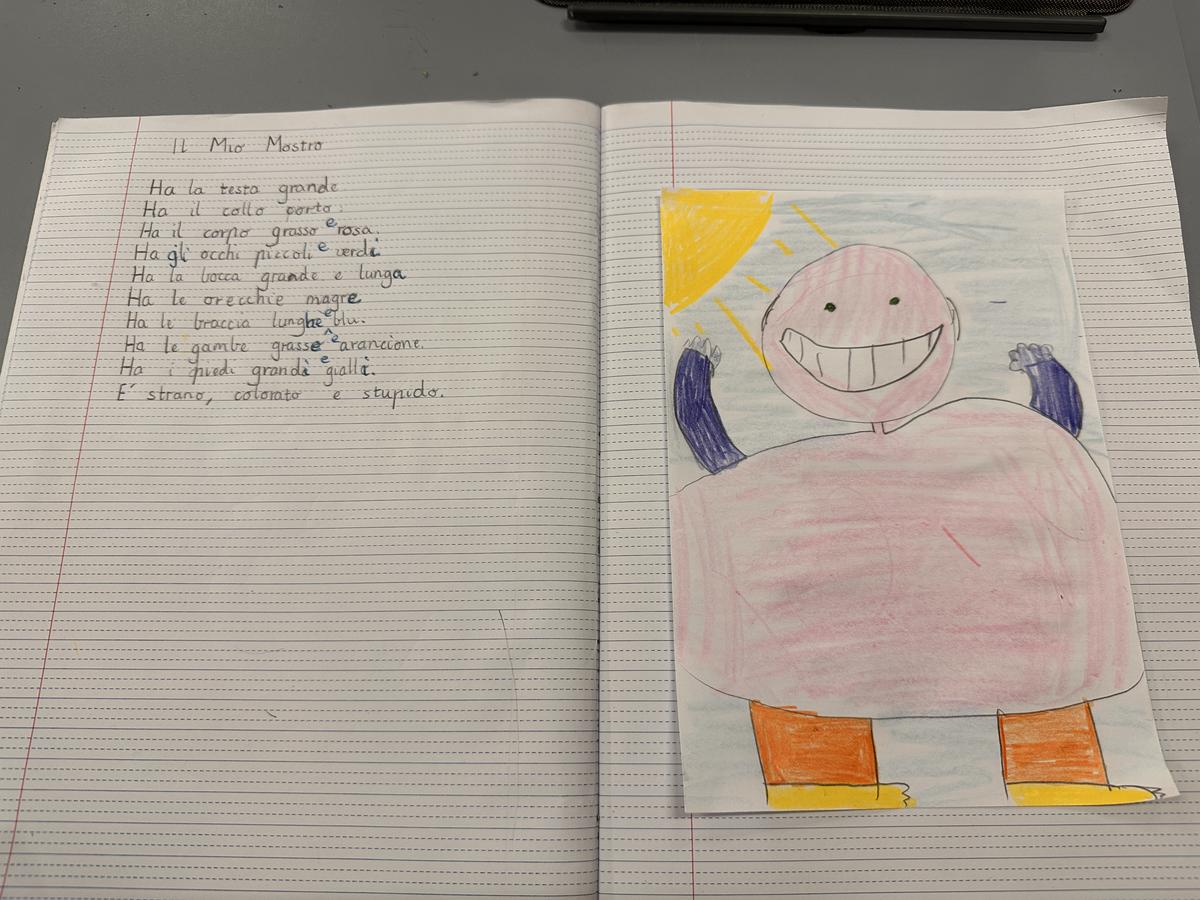 Il Mio Mostro
Ha la testa grande
Ha il collo porto.
Ha il corpo grasso e rosa.
Ha gli occhi piccoli e verdi
Ha la bocca grande e lunga
Ha le orecchie magre
Ha le braccia lunghe e blu.
Ha le gambe grasse e arancione.
Ha i piedi grandi e gialli.
E' strano, colorato e stupido.